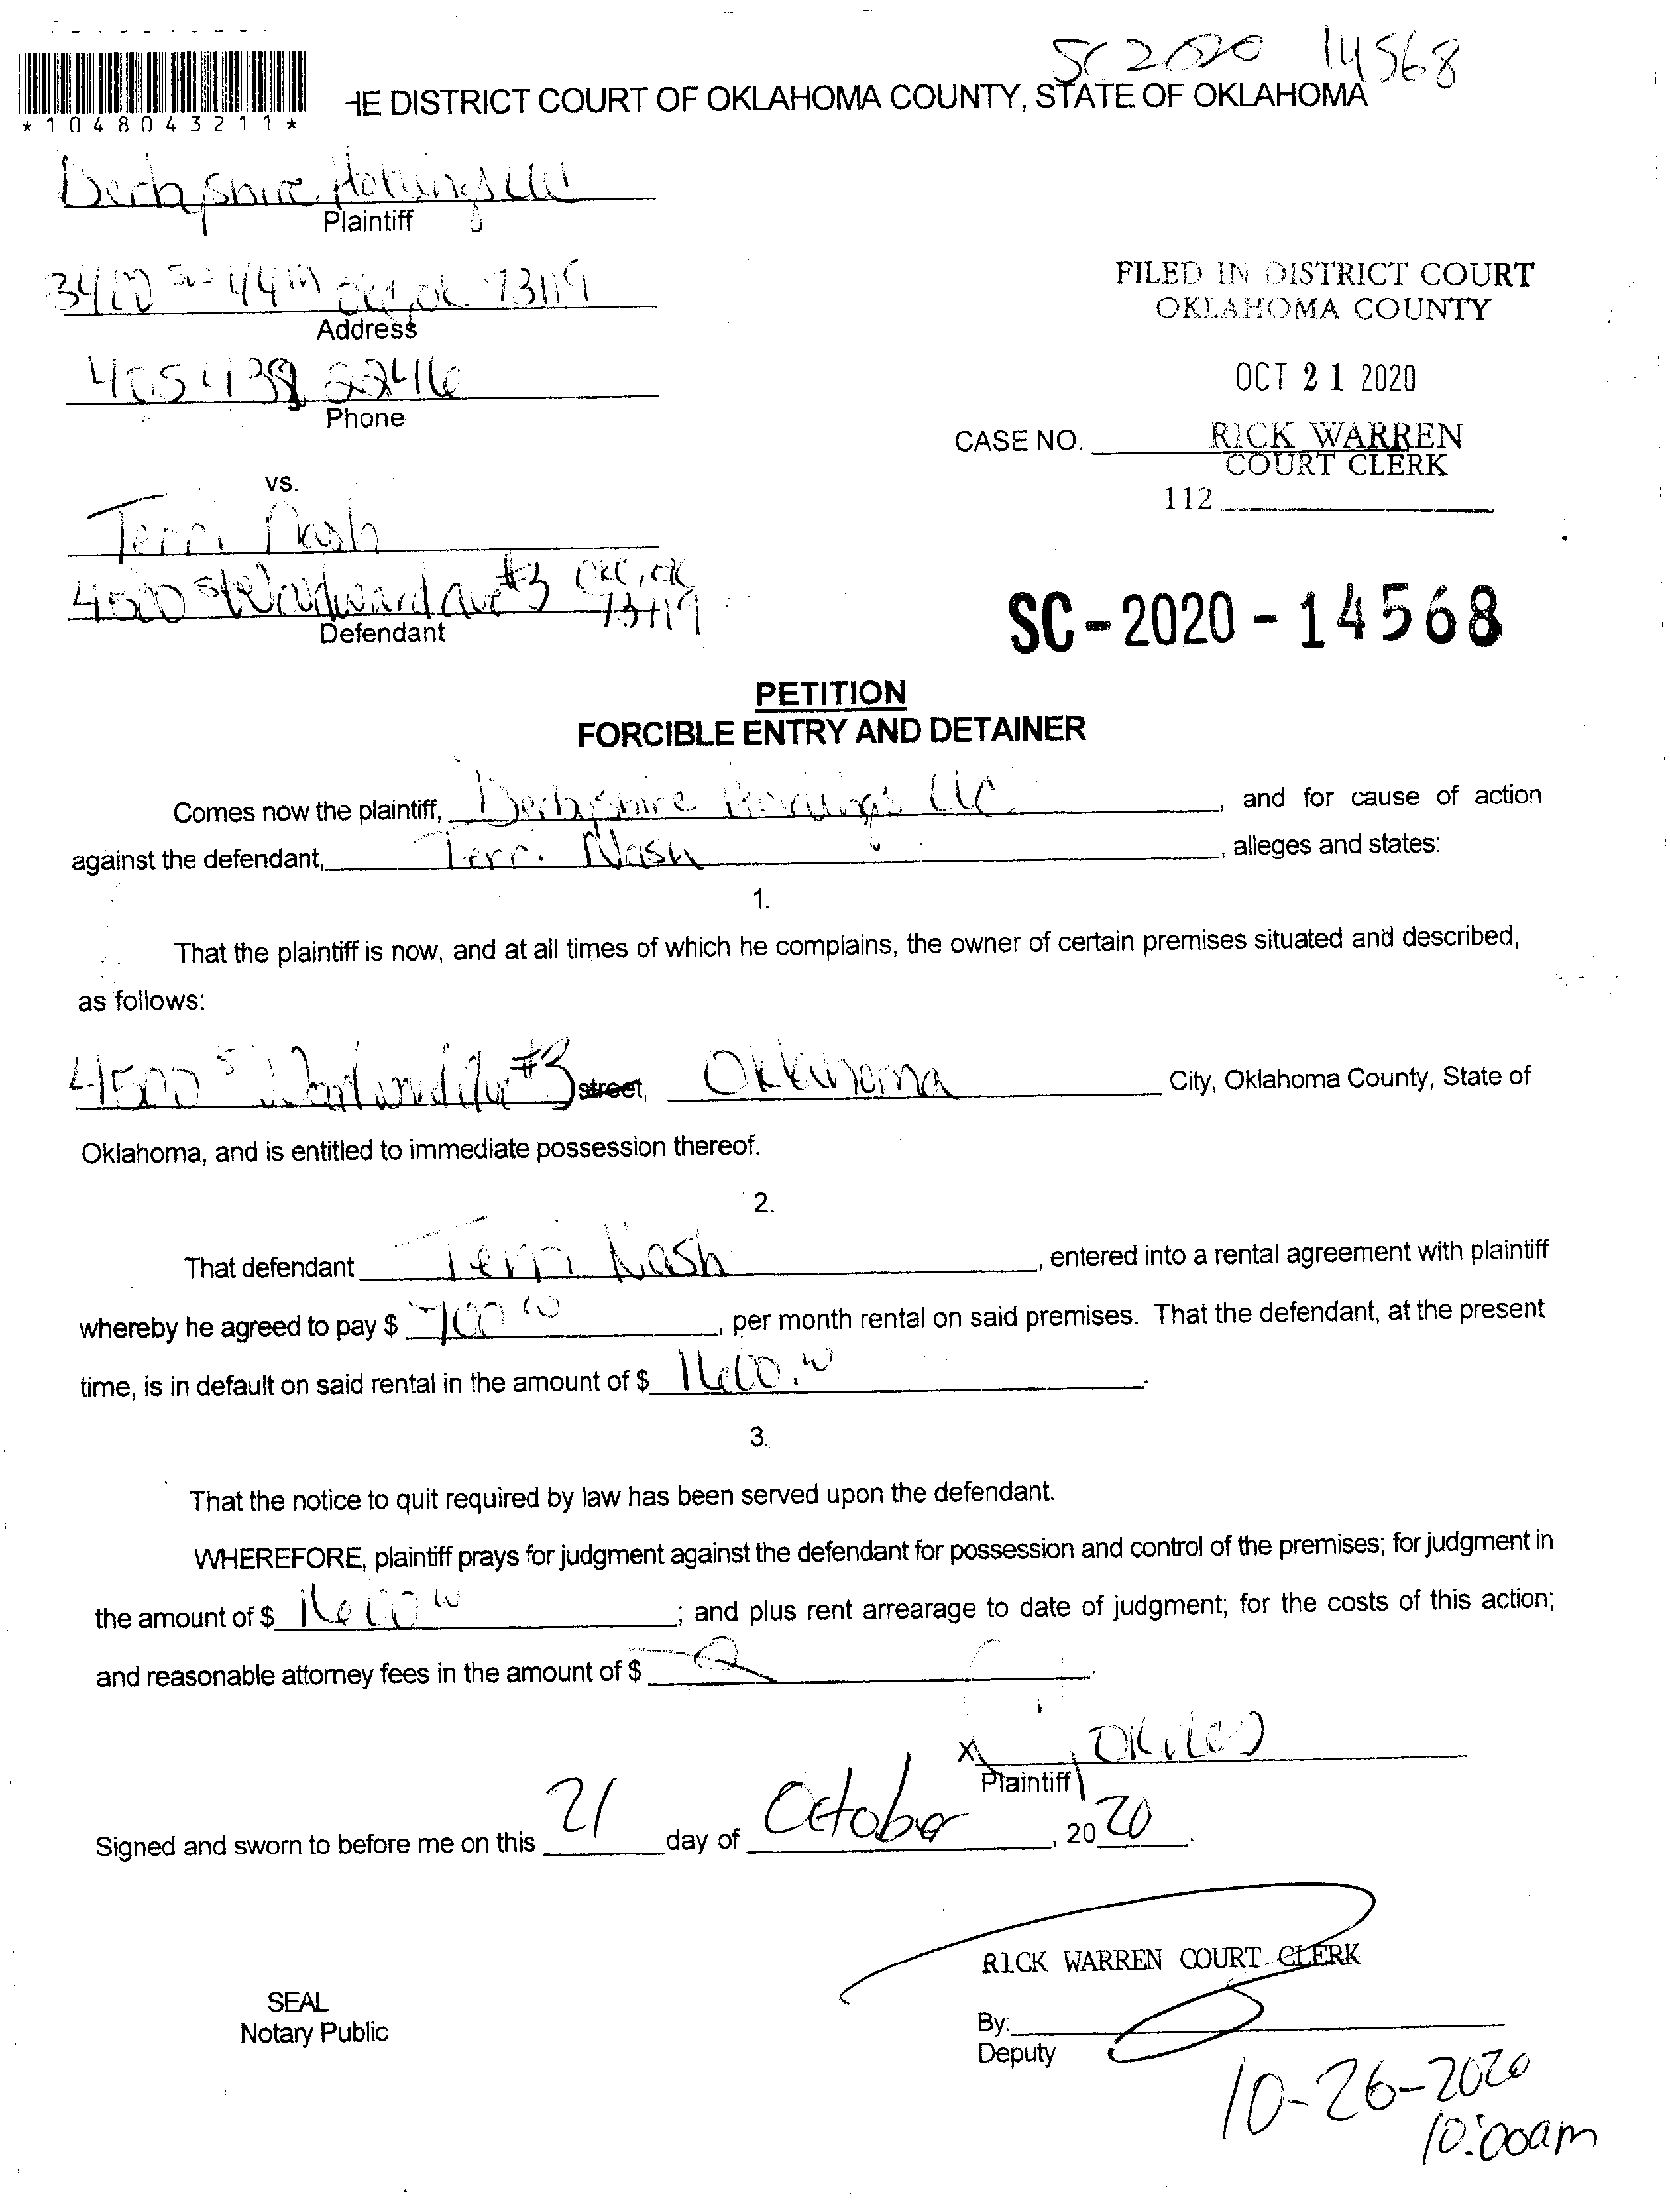 SC 2020 14568
*1048043211*
HE DISTRICT COURT OF OKLAHOMA COUNTY, STATE OF OKLAHOMA
Derbyshire Holdings LLC
Plaintiff
44th OKC, OK 73119
Address
405
Phone
FILED IN DISTRICT COURT
OKLAHOMA COUNTY
OCT 21 2020
RICK WARREN
COURT CLERK
CASE NO.
112
vs.
Terri Nash
4500 S #3 OKC, OK
73119
Defendant
SC-2020-14568
PETITION
FORCIBLE ENTRY AND DETAINER
Comes now the plaintiff, Derbyshire Holdings LLC, and for cause of action
against the defendant, Terri Nash, alleges and states:
1.
That the plaintiff is now, and at all times of which he complains, the owner of certain premises situated and described,
as follows:
4500 S #3 street, Oklahoma City, Oklahoma County, State of
Oklahoma, and is entitled to immediate possession thereof.
2.
That defendant Terri Nash, entered into a rental agreement with plaintiff
whereby he agreed to pay $ 700.00, per month rental on said premises. That the defendant, at the present
time, is in default on said rental in the amount of $ 1600.00.
3.
That the notice to quit required by law has been served upon the defendant.
WHEREFORE, plaintiff prays for judgment against the defendant for possession and control of the premises; for judgment in
the amount of $ 1600.00; and plus rent arrearage to date of judgment; for the costs of this action;
and reasonable attorney fees in the amount of $
X
Plaintiff
Signed and sworn to before me on this 21 day of October, 2020.
RICK WARREN COURT CLERK
SEAL
Notary Public
By:
Deputy
10-26-2020
10:00am